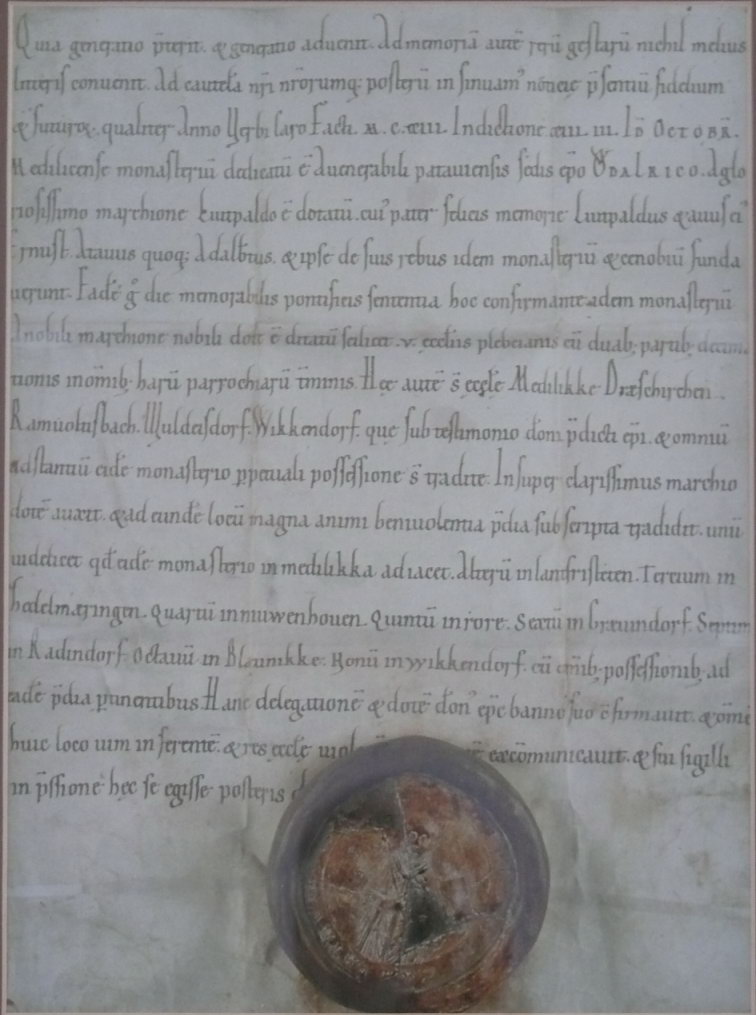 Quia generatio p̄terit. & generatio aduenit. Ad memoriā autē rerū gestarū nichil melius
litteris conuenit. Ad cautelā nr̄i nr̄orumq; posterū in sinuam' noticię p̄sentiū fidelium
& futurorū. qualiter Anno Verbi caro Facti. M. c. xiii. Indictione .iii. Id̄ Octobr̄.
Medilicense monasteriū dedicatū ē Auenerabili patauiensis sedis ep̄o Vdalrico. Aglo
riosissimo marchione Liutpaldo ē dotatū. cui' pater felicis memorie Liutpaldus & auus ei'
Ernust. Atauus quoq; Adalb̄tus. & ipse de suis rebus idem monasteriū & cenobiū funda
uerunt. Eadē g° die memorabilis pontificis sententia hoc confirmante idem monasteriū
Anobili marchione nobili dote ē ditatū scilicet .v. ecclīis plebeianis cū duab; partib; decima
tionis in om̄ib; harū parrochiarū t̄minis. Hęc autē s̄ ecclę̄ Medilikke. Dræschirchen.
Ramuoltisbach. Muldeisdorf. Wikkendorf. que sub testimonio dom̄ p̄dicti ep̄i. & omniū
adstantiū eidē monasterio p̱petuali possessione s̄ tradite. Insuper clarissimus marchio
dotē auxit. & ad eundē locū magna animi beniuolentia p̄dia subscripta tradidit. unū
uidelicet qd̄ eidē monasterio in medilikka adiacet. Alterū in lantfristeten. Tercium in
hedelmæringen. Quartū in niuwenhouen. Quintū in rore. Sextū in bræuindorf. Septim̄
in Radindorf. Octauū in Bleunikke. Nonū in wikkendorf. cū om̄ib; possessionib; ad
eadē p̄dia p̱tinentibus. Hanc delegationē & dotē don' ep̄c banno suo c̄firmauit. & om̄ē
huic loco uim inferentē. & res ecclę̄ excōmunicauit. & sui sigilli
in p̄ssione hęc se egisse posteris